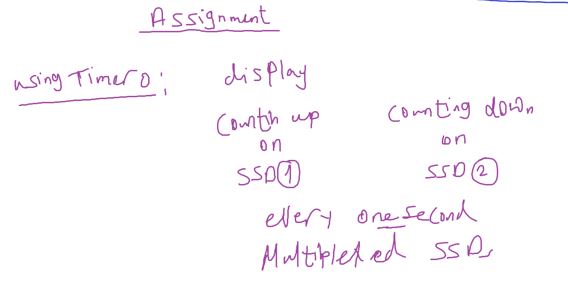 Assignment
using Timer0:
display
Counth up
on
SSD①
Counting down
on
SSD②
every one second
Multiplexed SSDs